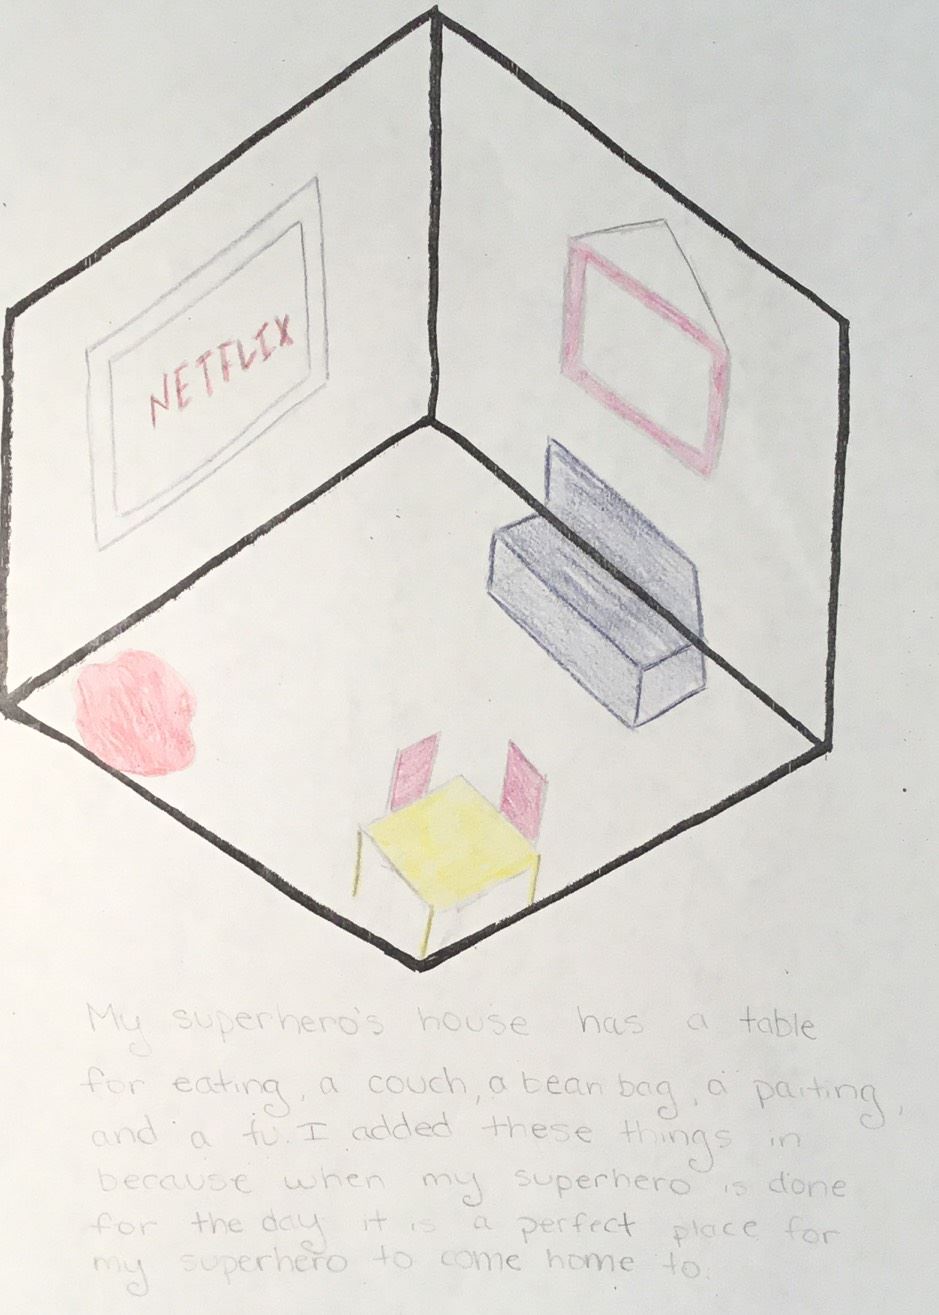 NETFLIX
My superhero's house has a table
for eating, a couch, a bean bag, a paiting,
and a tv. I added these things in
because when my superhero is done
for the day it is a perfect place for
my superhero to come home to.